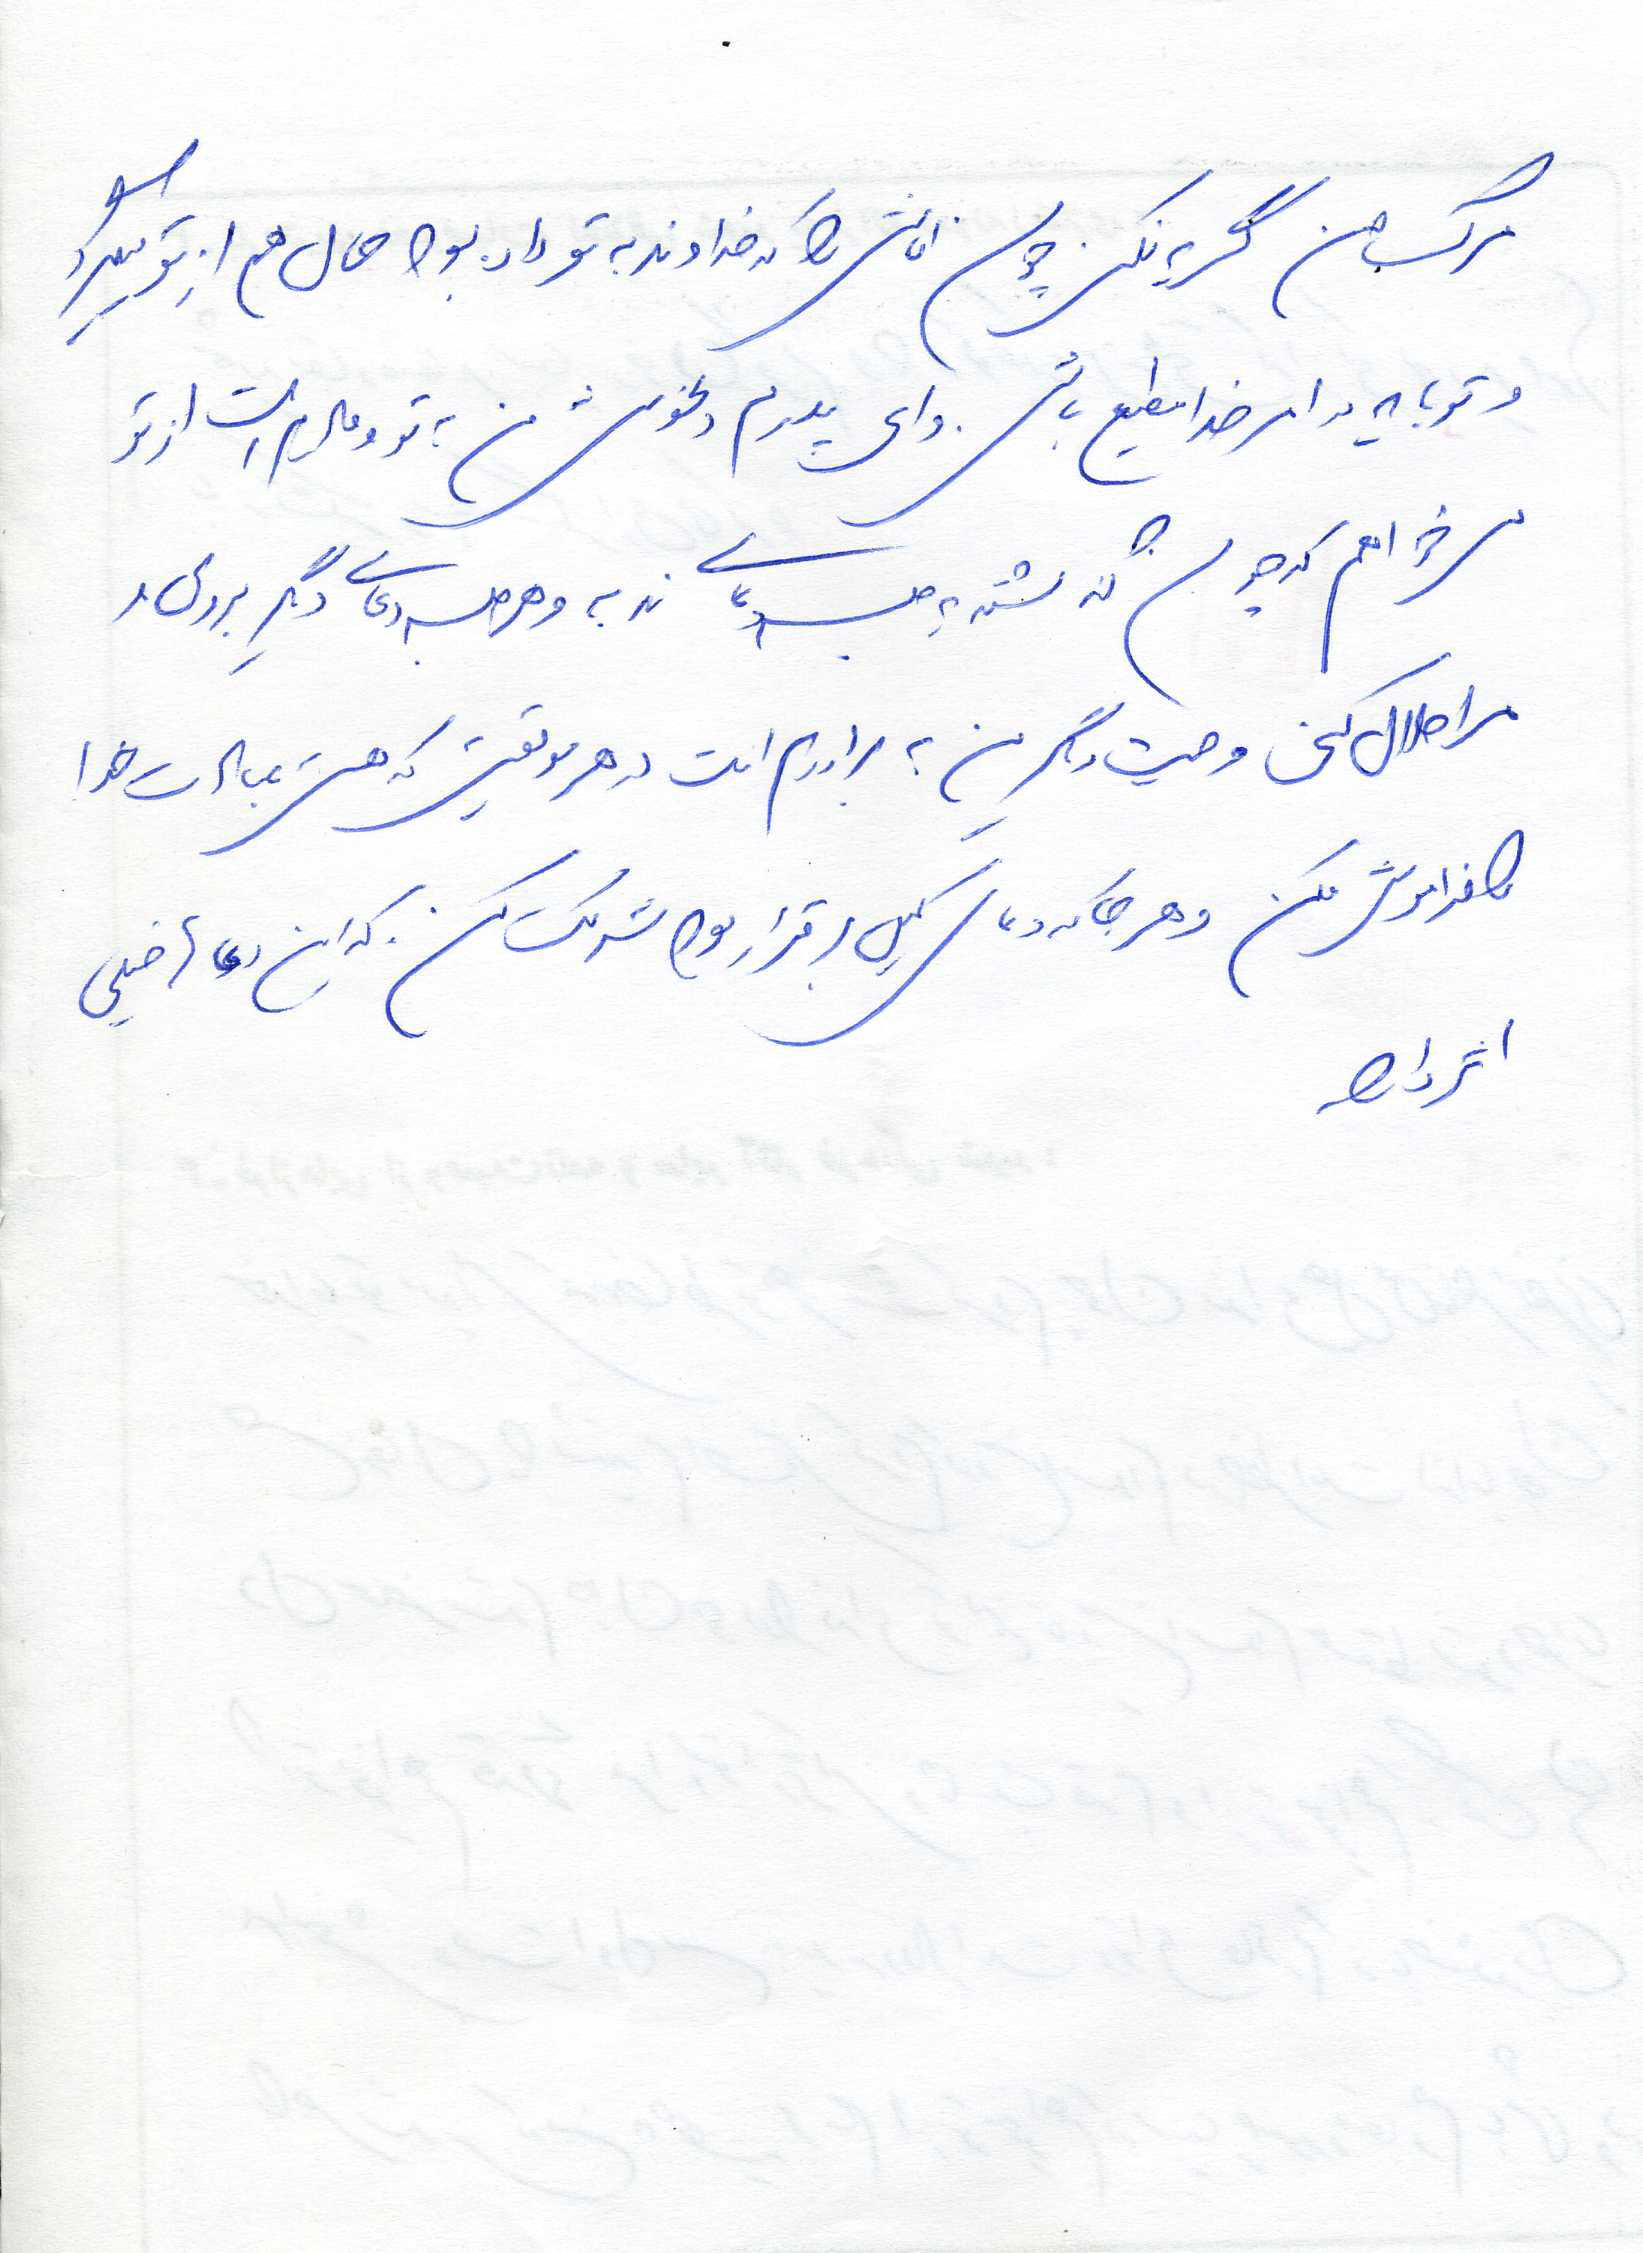 مرگ من گریه نکن چون امانتی را که خداوند به تو داده بود حال هم از تو میگیرد پس
و تو باید در امر خدا مطیع باشی. وای پدرم دلخوشی من به تو و مادرم است از تو
می خواهم که چون گذشته به جلسه دعای ندبه و هر جلسه دعای دیگر بروی و
مرا حلال کنی وصیت دیگر من به برادرم است در هر موقعیتی که هستی عبادت خدا
را فراموش مکن و هر جا که دعای کمیل برقرار بود شرکت کن. که این دعا خیلی
اثر دارد